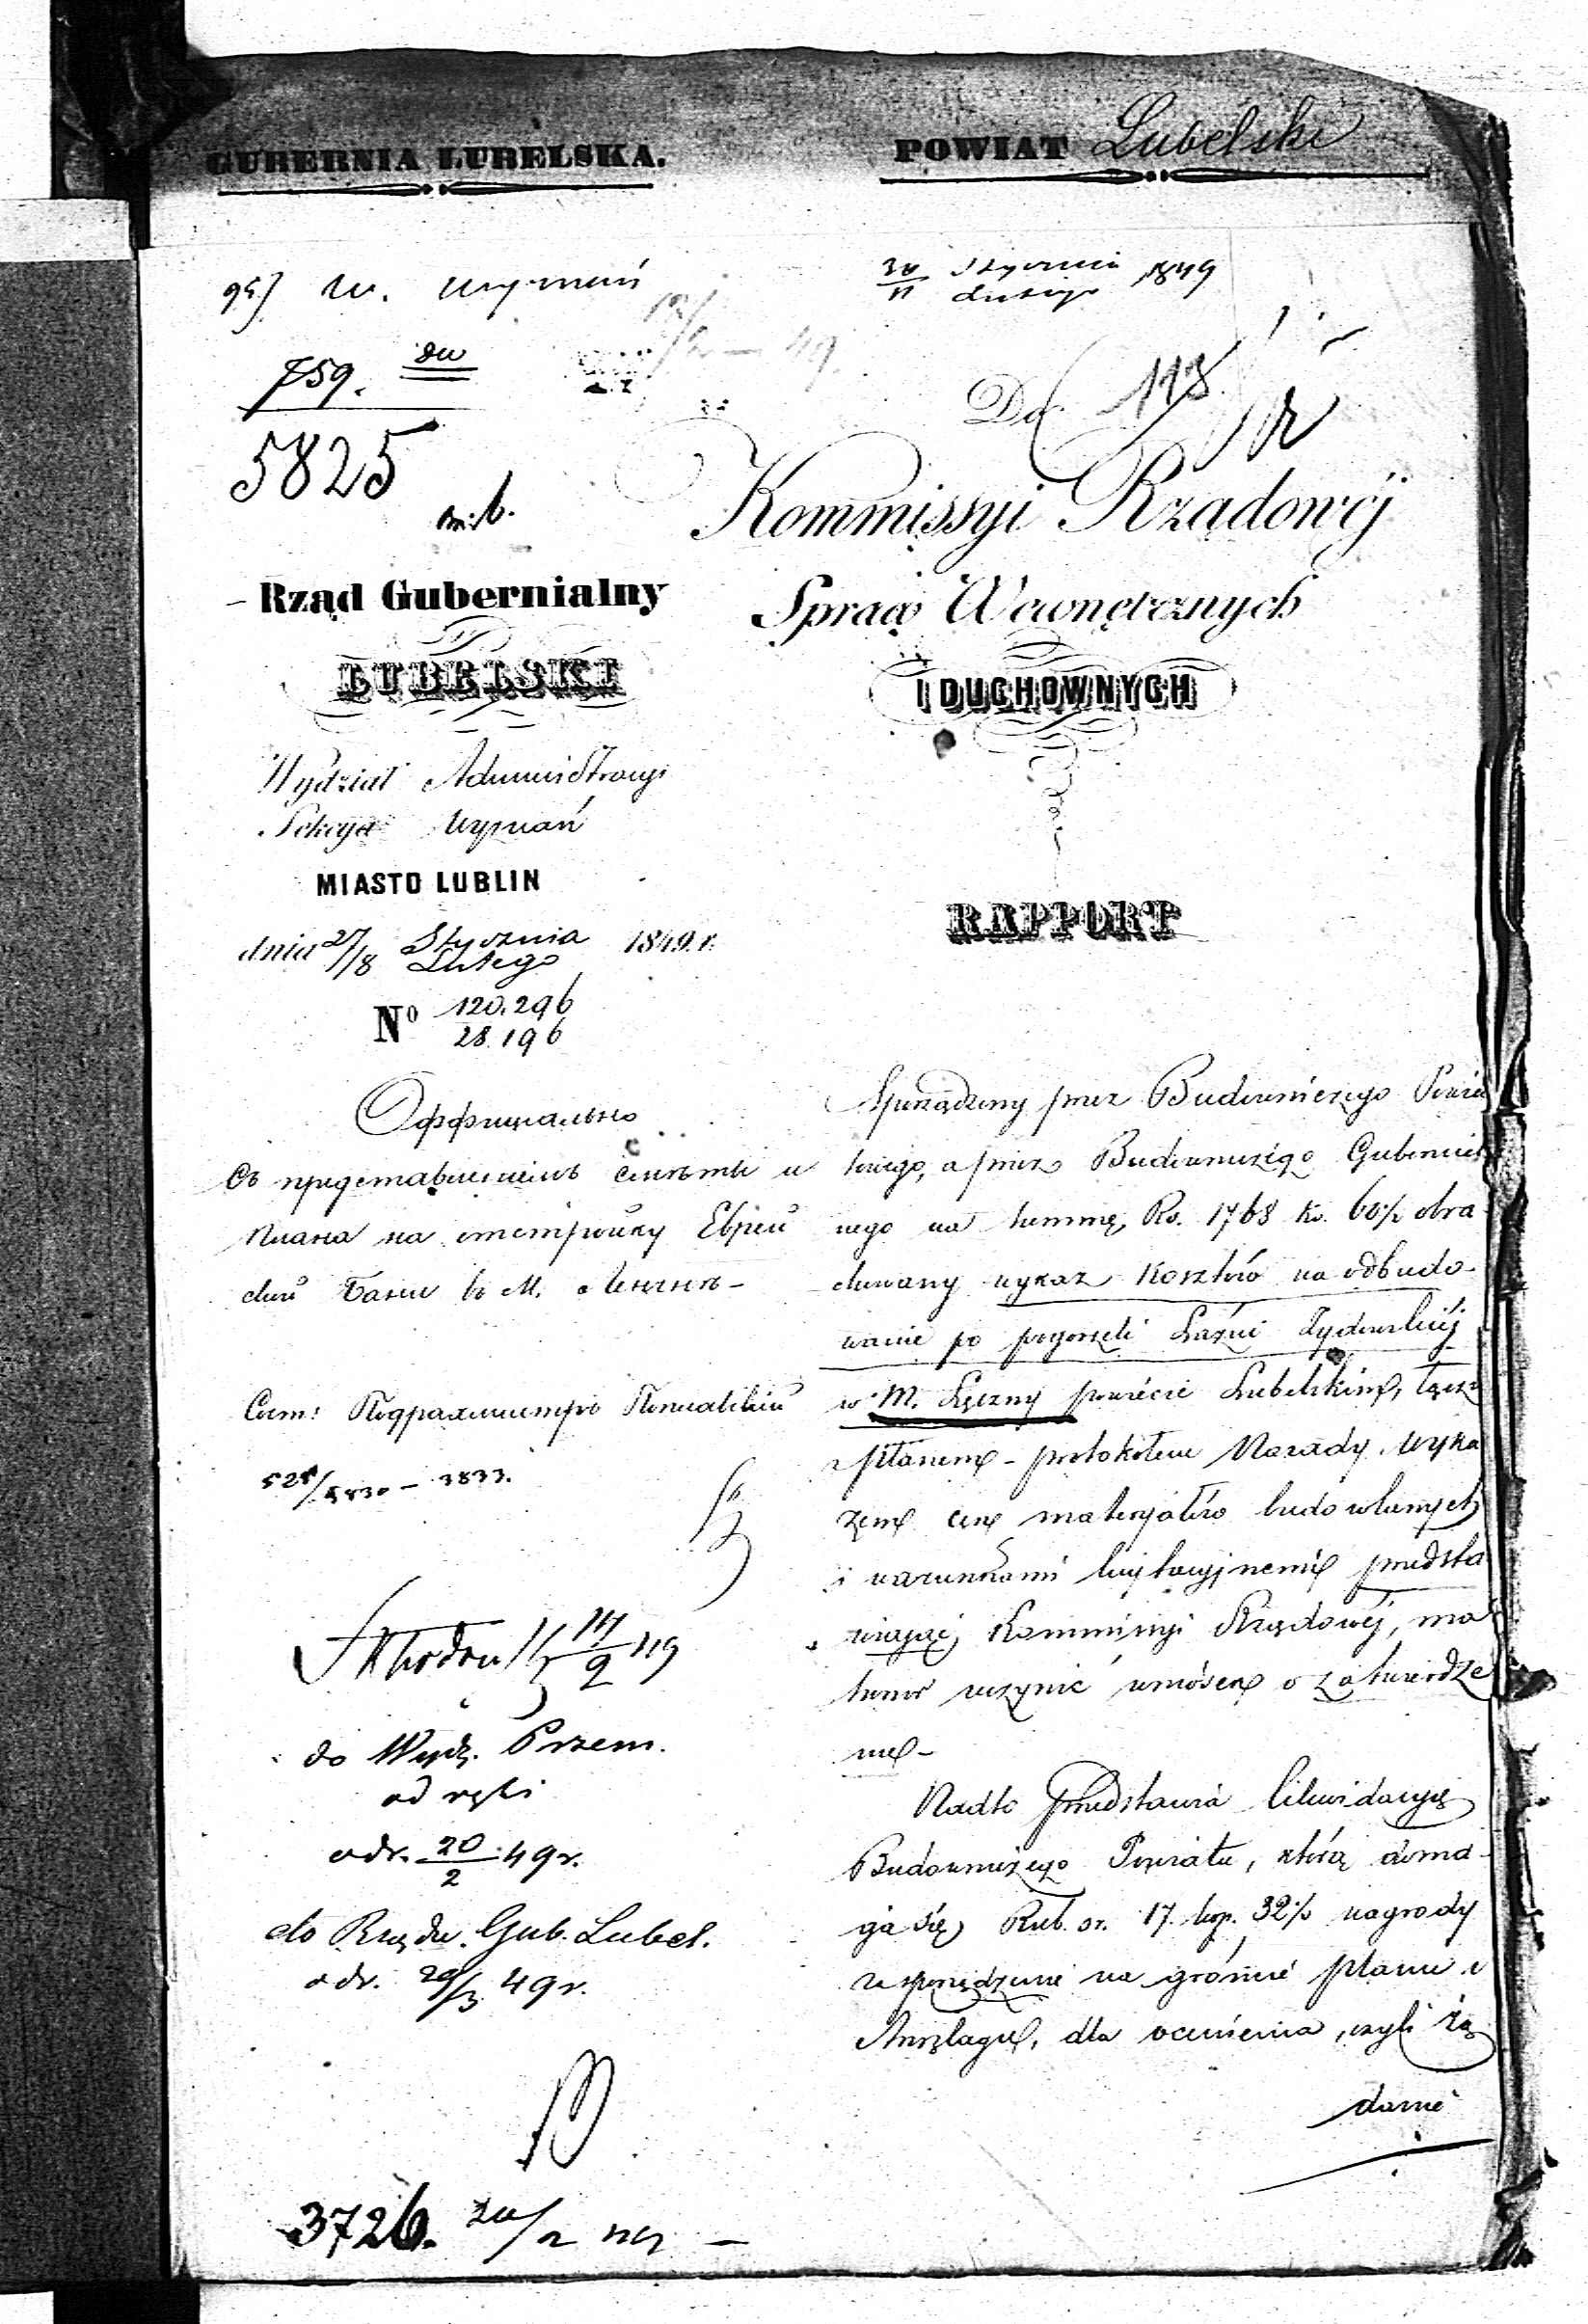 GUBERNIA LUBELSKA.
POWIAT Lubelski
30 Stycznia 1849
11 Lutego
W. Wyznań
759.
5825
118
Do
Kommissyi Rządowéj
Spraw Wewnętrznych
I DUCHOWNYCH
Rząd Gubernialny
LUBELSKI
Wydział Administracyi
Sekcya Wyznań
MIASTO LUBLIN
dnia 27/8 Stycznia Lutego 1849. r.
No 120.296
28.196
RAPPORT
Оффиціально
съ представленіемъ смѣты и
плана на отстройку Еврей
ской Бани въ М. Ленчнѣ -
Sporządzony przez Budowniczego Powia
towego, a przez Budowniczego Gubernial
nego na summę Rs. 1768 k. 60½ obra
chowany wykaz kosztów na odbudo-
wanie po pogorzeli Łaźni Żydowskiéj
w M. Łęczny powiecie Lubelskim, łącznie
z planem - protokółem Narady, wyka
zem cen materyałów budowlanych
i warunkami licytacyjnemi przedsta
wiając Kommissyi Rządowéj, ma
honor uczynić wniosek o zatwierdze
nie -
Nadto przedstawia likwidacyę
Budowniczego Powiatu, którą doma-
ga się Rub. sr. 17. kop. 32½ nagrody
za sporządzenie na gróncie planu i
Anszlagu, dla ocenienia, czyli żą
danie
525/3830 - 3833.
14/2 49
do Wydz. Przem.
od ręki
odr. 20/2 49 r.
do Rządu Gub. Lubel.
odr. 20/3 49 r.
3726.